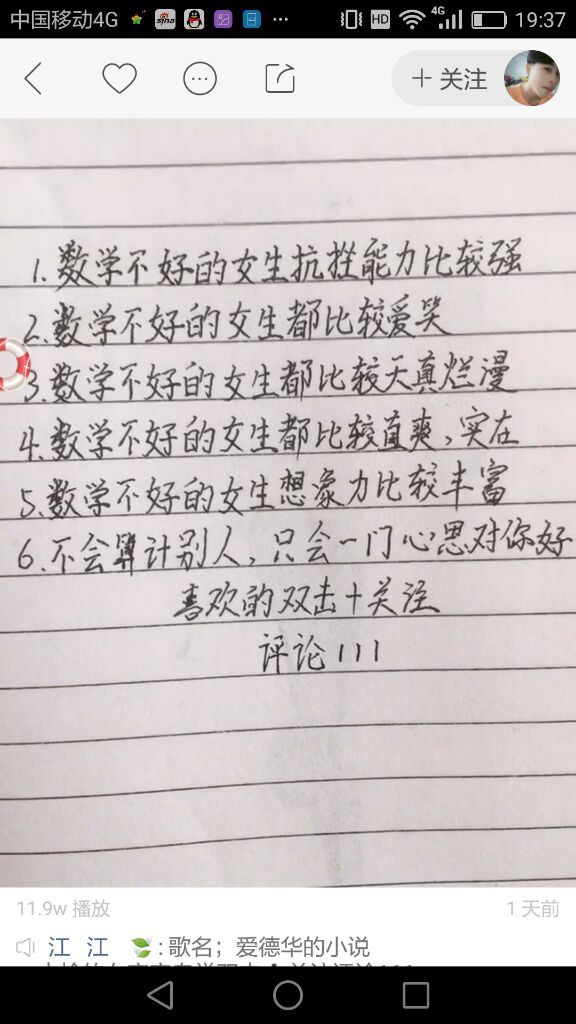 中国移动4G ... HD 4G 19:37
+ 关注
1.数学不好的女生抗挫能力比较强
2.数学不好的女生都比较爱笑
3.数学不好的女生都比较天真烂漫
4.数学不好的女生都比较直爽、实在
5.数学不好的女生想象力比较丰富
6.不会算计别人，只会一门心思对你好
喜欢的双击+关注
评论111
11.9w 播放 1 天前
江 江 : 歌名；爱德华的小说